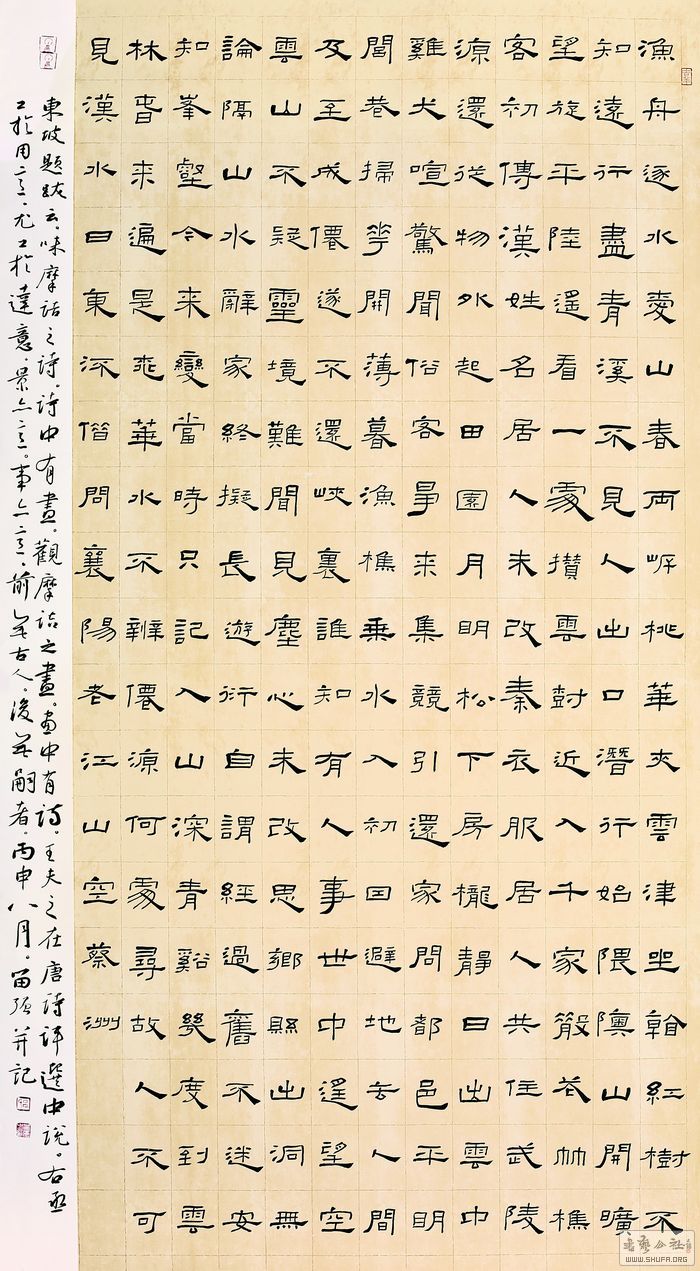 漁舟逐水愛山春兩岸桃華夾雲津坐看紅樹不
知遠行盡青溪不見人出口潛行始隈隩山開曠
望旋平陸遙看一處攢雲封近入千家散花竹樵
客初傳漢姓名居人未改秦衣服居人共住武陵
源還從物外起田園月明松下房櫳靜日出雲中
雞犬喧驚聞俗客爭來集競引還家問都邑平明
閭巷掃花開薄暮漁樵乘水入初因避地去人間
及至成僊遂不還峽裏誰知有人事世中遙望空
雲山不疑靈境難聞見塵心未改思鄉縣出洞無
論隔山水辭家終擬長遊衍自謂經過舊不迷安
知峯壑今來變當時只記入山深青谿幾度到雲
林春來遍是桃華水不辨僊源何處尋故人不可
見漢水日東流借問襄陽老江山空蔡洲
東坡題跋云。味摩詰之詩。詩中有畫。觀摩詰之畫。畫中有詩。王夫之在唐詩評選中說。右丞
工於用意。尤工於達意。景亦意。事亦意。前無古人。後無嗣者。丙申八月。并記
书艺公社
WWW.SHUFA.ORG